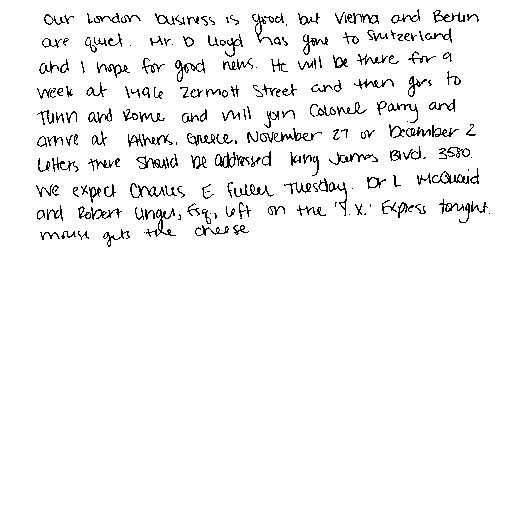 Our London business is good, but Vienna and Berlin
are quiet. Mr. D Lloyd has gone to Switzerland
and I hope for good news. He will be there for a
week at 1496 Zermott Street and then goes to
Turin and Rome and will join Colonel Parry and
arrive at Athens, Greece, November 27 or December 2
Letters there should be addressed King James Blvd. 3580.
We expect Charles E Fuller Tuesday. Dr L McQuaid
and Robert Unger, Esq., left on the 'Y.X.' Express tonight.
mouse gets the cheese